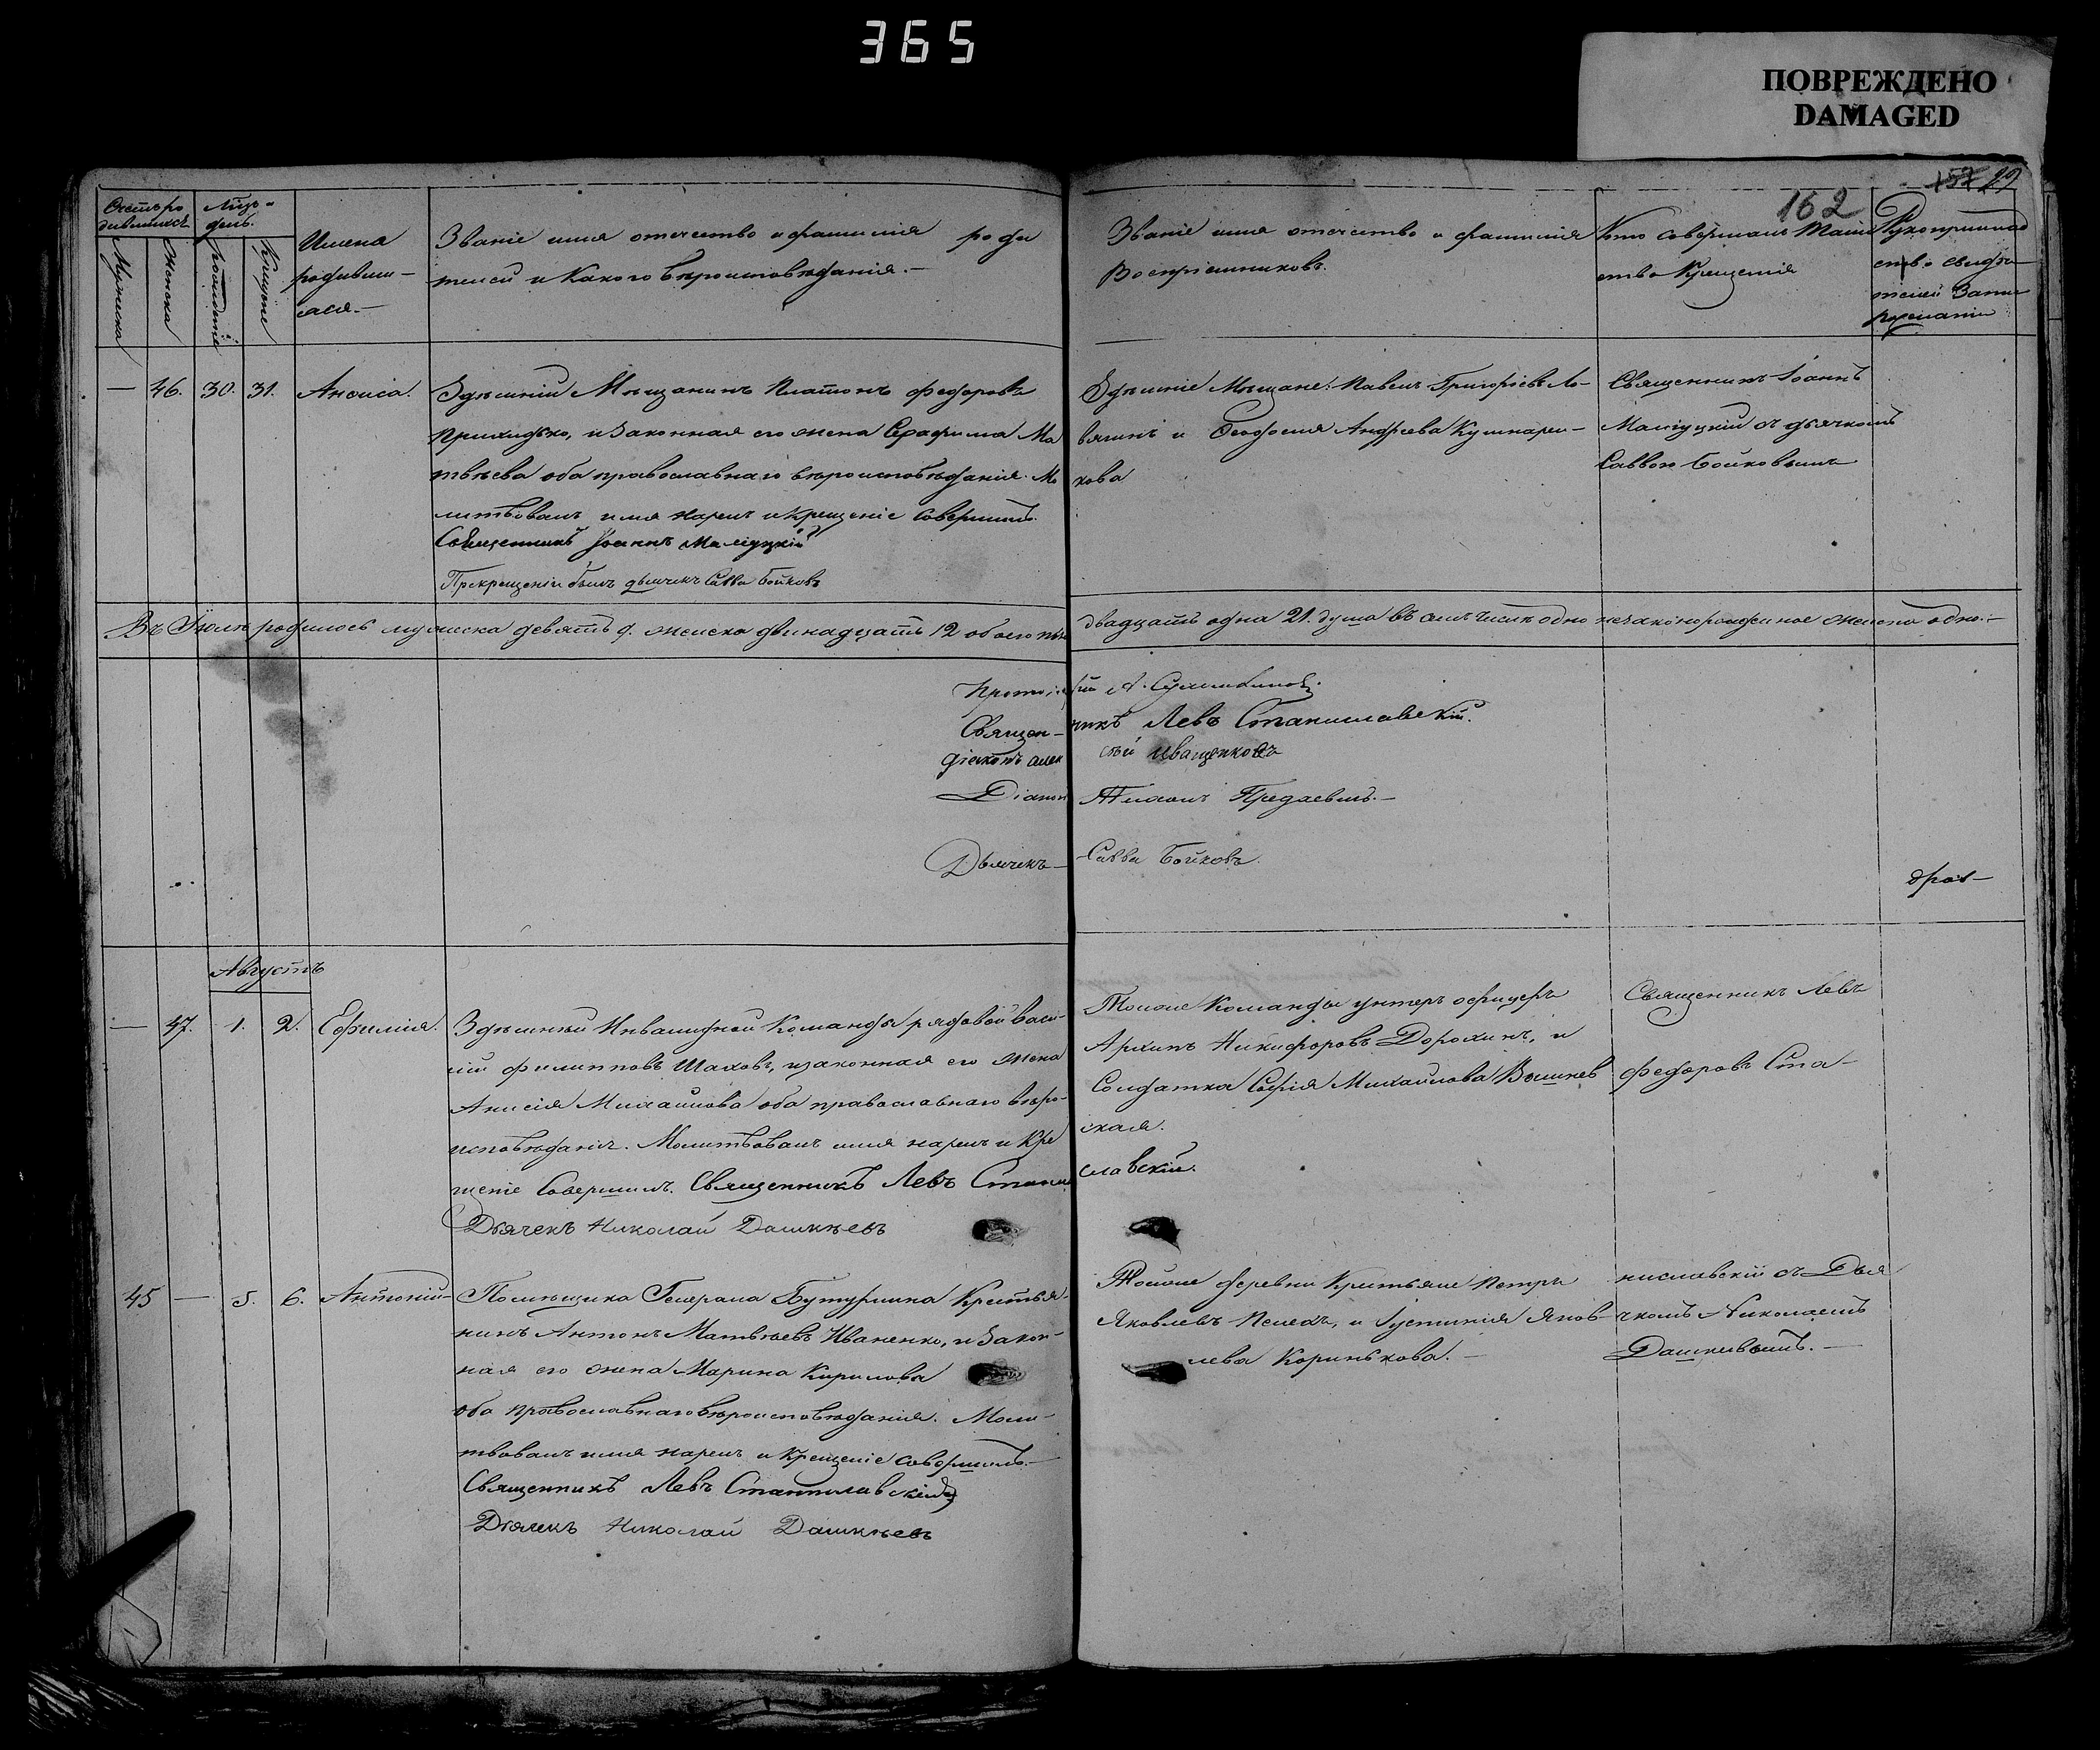 365
ПОВРЕЖДЕНО
DAMAGED
157 29
162
Счетъ ро
дившихся
Мѣс.
день.
Мужеска
Женска
рожденіе
Крещенія
Имена
родивши-
хся.-
Званіе имя отечество и фамилія роди
телей и Какого вѣроисповѣданія.-
Званіе имя отечество и фамилія
Воспріемниковъ.
Кто совершалъ Таин
ство Крещенія
Рукоприклад
ство свидѣ-
телей Запи
— 46. 30. 31. Анѳиса.
Здѣшній Мѣщанинъ Платонъ Федоровъ
Приходько, и Законная его жена Серафима Ма
твѣева оба православнаго вѣроисповѣданія. Мо
литвовалъ имя нарелъ и крещеніе совершилъ
Священникъ Іоаннъ Малѣцкій
При крещеніи былъ дьячекъ Савва Бойковъ
Здѣшніе Мѣщане: Павелъ Григорьевъ Ло-
вягинъ и Ѳеодосия Андреева Кушнарен-
кова
Священникъ Іоаннъ
Малѣцкій съ дьячкомъ
Саввою Бойковымъ
Въ Іюлѣ родилось мужеска девять 9. женска двѣнадцать 12 обоего пола двадцать одна 21. душа въ томъ числѣ одно незаконорожденное женска одно.-
Протоіерей А.
Священ-никъ Левъ Станиславскій.
діаконъ Алексѣй Иващенковъ
Діакон
Дьячекъ- Савва Бойковъ.
Августъ
— 47. 1. 2. Ефимія.
Здѣшней Инвалидной Команды рядовой Васи-
лій Филипповъ Шаховъ, изаконная его жена
Анисія Михайлова оба православнаго вѣро-
исповѣданія. Молитвовалъ имя нарелъ и Кре
щеніе Совершилъ. Священникъ Левъ Станиславскій.
Дьячекъ Николай Дашкѣевъ
Тойже Команды унтеръ офицеръ
Архипъ Никифоровъ Дорохинъ, и
Солдатка Софія Михайлова Вышнев
ская.
Священникъ Левъ
Федоровъ Ста-
45 — 5. 6. Антоній-
Помѣщика Генерала Бутурлина Крестья-
нинъ Антонъ Матвѣевъ Иваненко, и Закон-
ная его жена Марина Кирилова
оба православнаго вѣроисповѣданія. Моли-
твовалъ имя нарелъ и крещеніе совершилъ.-
Священникъ Левъ Станиславскій
Дьячекъ Николай Дашкѣевъ
Тойже деревни Крестьяне Петръ
Яковлевъ Пелехъ, и Іустинія Яков-
лева Коринькова.-
ниславскій съ Дья
чкомъ Николаемъ
Дашкевымъ.-